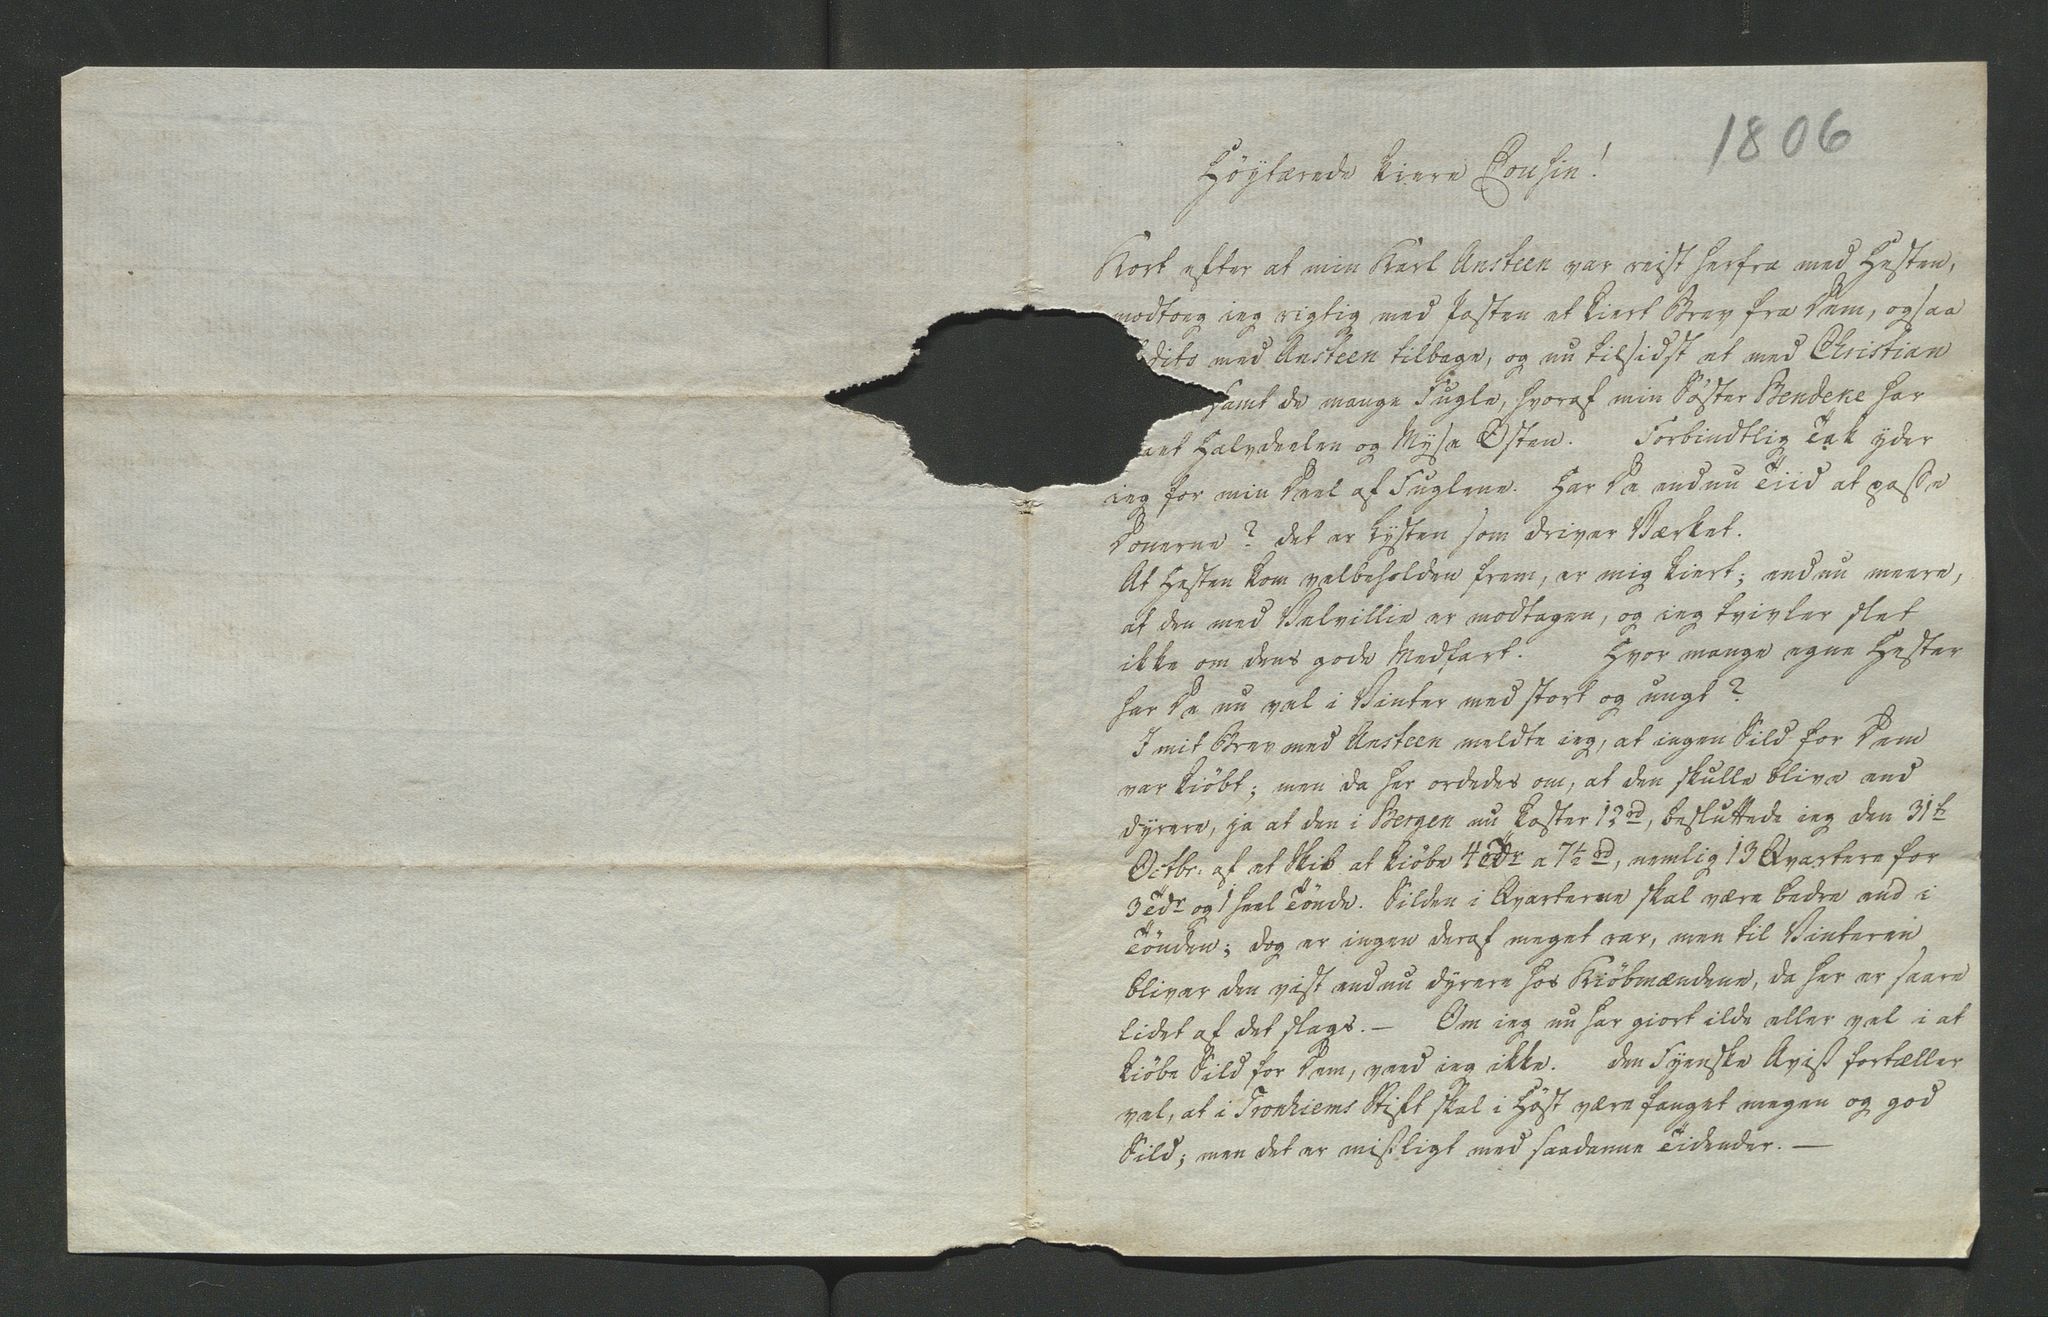 1806
Höÿtærede kiere Cousin!
Kort efter at min Karl Ansteen var reist herfra med Hesten,
modtoeg ieg rigtig med Posten et kiert Brev fra Dem, ogsaa
dito med Ansteen tilbage, og nu tilsidst et med Christian
samt de mange Fugle, hvoraf min Söster Bendeke har
Halvdeelen og Mysæ Osten. Forbindtlig Tak ÿder
ieg for min Deel af Fuglene. Har De endnu Tiid at passe
Donerne? det er Lÿsten som driver Værket.
At Hesten kom velbeholden frem, er mig kiert; endnu meere,
at den med Velvillie er modtagen, og ieg tvivler slet
ikke om dens gode Medfart. Hvor mange egne Hester
har De nu vel i Vinter med stort og ungt?
I mit Brev med Ansteen meldte ieg, at ingen Sild for Dem
var kiöbt; men da her ordedes om, at den skulle blive end
dÿrere, ja at den i Bergen nu koster 12 rd, besluttede ieg den 31t
Octbr. af et Skib at kiöbe 4 Tdr a 7½ rd, nemlig 13 Qvartere for
3 Tdr og 1 heel Tönde. Silden i Qvarterne skal være bedre end i
Tönden; dog er ingen deraf meget rar, men til Vinteren
bliver den vist endnu dÿrere hos Kiöbmændene, da her er saare
lidet af det slags. — Om ieg nu har giort ilde eller vel i at
kiöbe Sild for Dem, veed ieg ikke. den Fÿenske Aviß fortæller
vel, at i Tronhiems Stift skal i Höst være fanget megen og god
Sild; men det er mißligt med saadanne Tidender. —